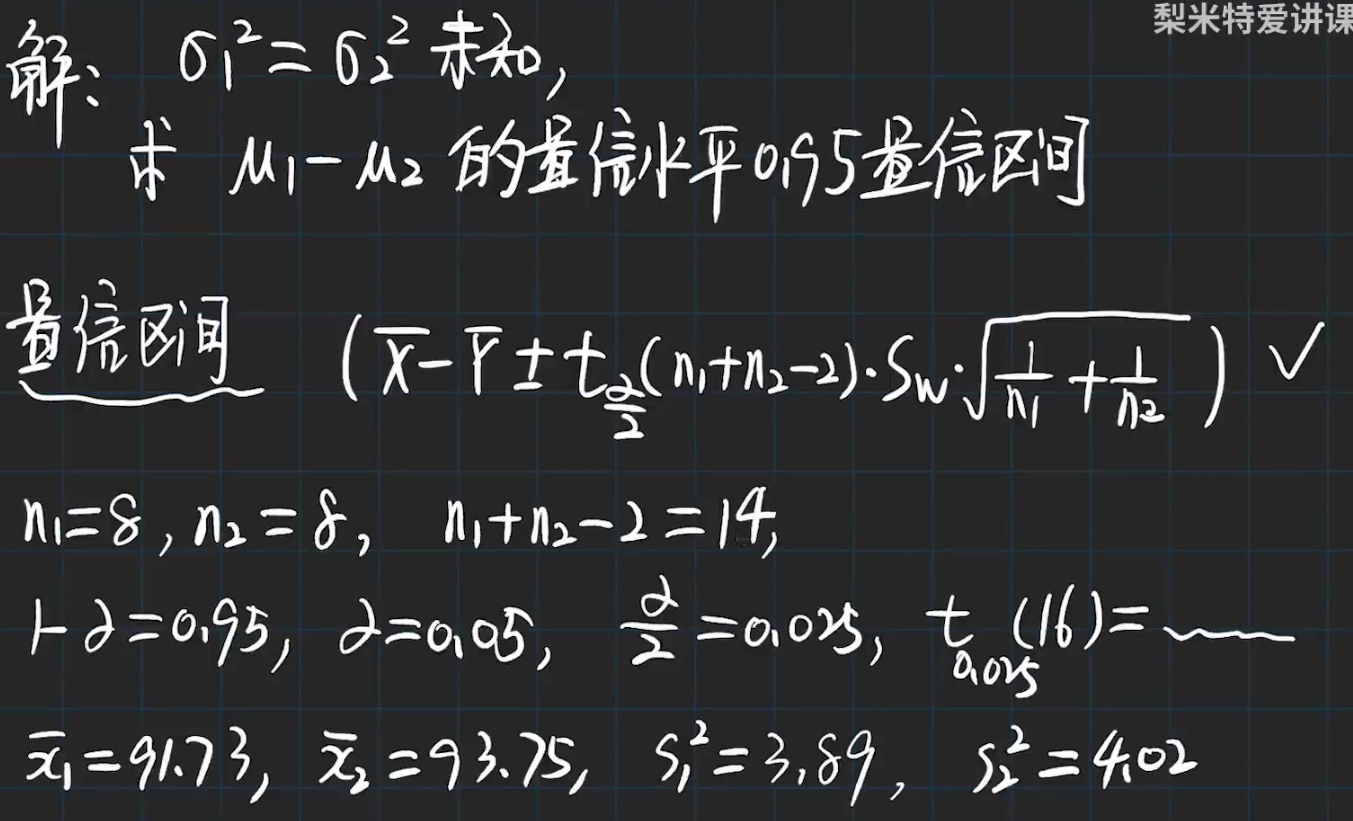 梨米特爱讲课
解: σ₁² = σ₂² 未知,
求 μ₁-μ₂ 的置信水平0.95置信区间
置信区间 (x̄-Ȳ ± t_{α/2}(n₁+n₂-2)·S_W·√(1/n₁ + 1/n₂)) ✓
n₁=8, n₂=8, n₁+n₂-2=14,
1-α=0.95, α=0.05, α/2=0.025, t_{0.025}(16)=
x̄₁=91.73, x̄₂=93.75, s₁²=3.89, s₂²=4.02